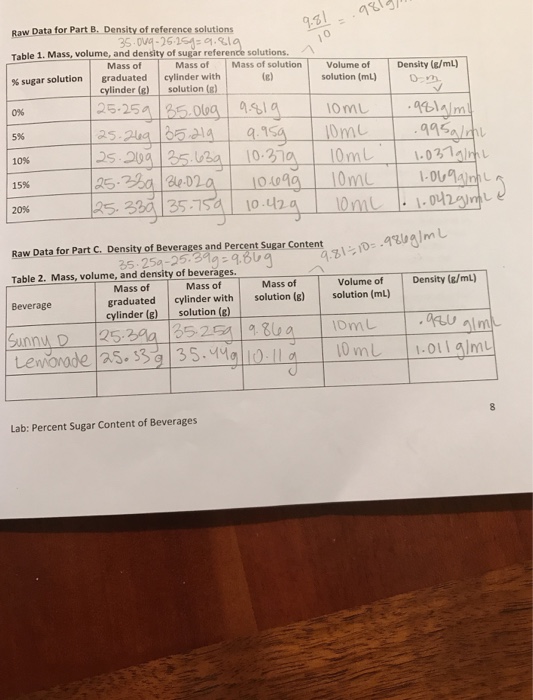 Raw Data for Part B. Density of reference solutions
9.81
10
=
35.06g-25.25g=9.81g
Table 1. Mass, volume, and density of sugar reference solutions.
% sugar solution | Mass of graduated cylinder (g) | Mass of cylinder with solution (g) | Mass of solution (g) | Volume of solution (mL) | Density (g/mL) D=m/v
0% | 25.25g | 35.06g | 9.81g | 10mL | .981g/mL
5% | 25.26g | 35.21g | 9.95g | 10mL | .995g/mL
10% | 25.26g | 35.63g | 10.37g | 10mL | 1.037g/mL
15% | 25.33g | 36.02g | 10.69g | 10mL | 1.069g/mL
20% | 25.33g | 35.75g | 10.42g | 10mL | 1.042g/mL
Raw Data for Part C. Density of Beverages and Percent Sugar Content
35.25g-25.39g=9.86g
9.81÷10=.986g/mL
Table 2. Mass, volume, and density of beverages.
Beverage | Mass of graduated cylinder (g) | Mass of cylinder with solution (g) | Mass of solution (g) | Volume of solution (mL) | Density (g/mL)
Sunny D | 25.39g | 35.25g | 9.86g | 10mL | .986 g/mL
Lemonade | 25.33g | 35.44g | 10.11g | 10mL | 1.011g/mL
8
Lab: Percent Sugar Content of Beverages